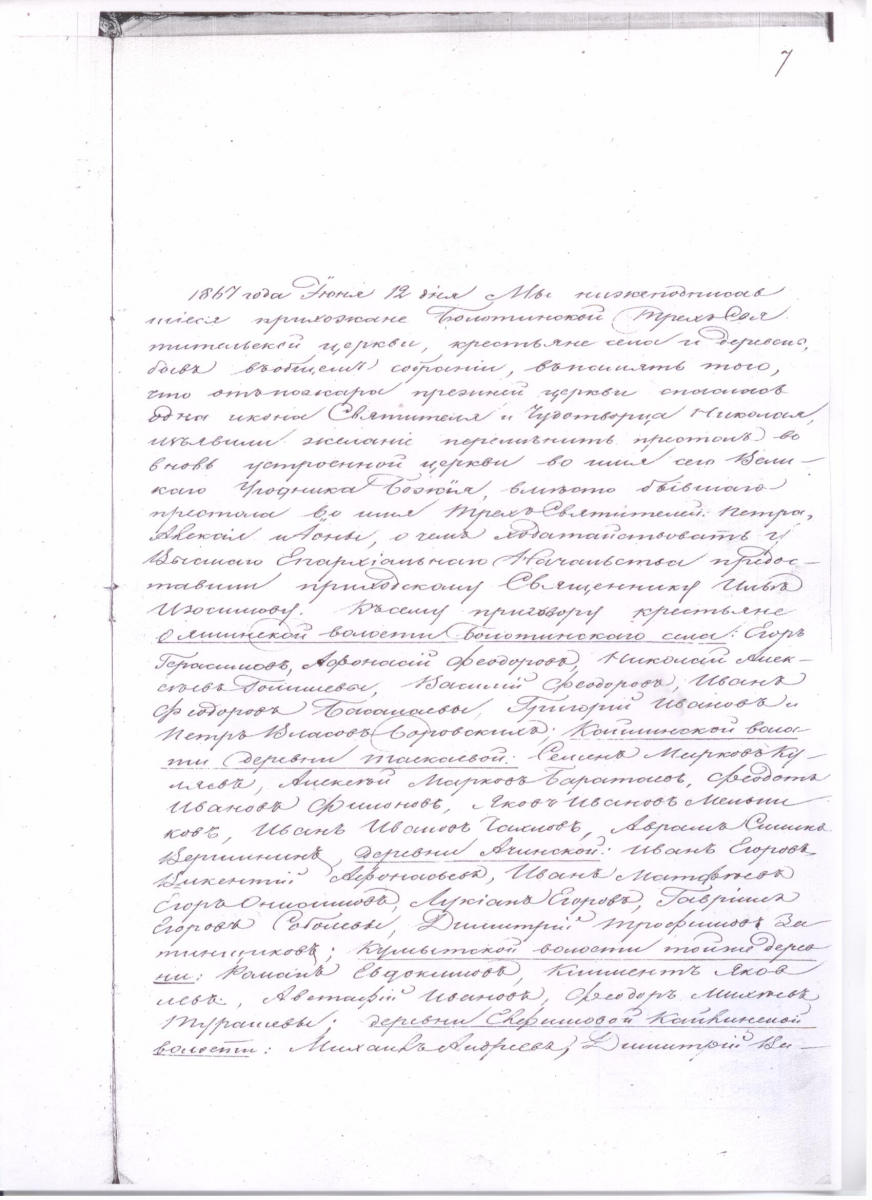 7
1867 года Іюня 12 дня Мы нижеподписав
шіеся прихожане Болотинской Трехъ Свя
тительской церкви, крестьяне села и деревень,
бывъ въ общемъ собраніи, въ память того,
что отъ пожара прежней церкви спаслась
одна икона Святителя и Чудотворца Николая,
изъявили желаніе перемѣнить престолъ во
вновь устроенной церкви во имя сего Вели-
каго Угодника Божія, вмѣсто бывшаго
престола во имя Трехъ Святителей: Петра,
Алексія и Іоны, о чемъ ходатайствовать у
Высшаго Епархіальнаго Начальства предос-
тавили приходскому Священнику Ильѣ
Изосимову. Къ сему приговору крестьяне
волости Болотинскаго села: Егоръ
Герасимовъ, Афонасій Феодоровъ, Николай Алек-
сѣевъ Василій Феодоровъ, Иванъ
Феодоровъ Григорій Ивановъ и
Петръ Власовъ Боровскихъ; Кайлинской воло-
ти деревни Таскаевой: Семенъ Марковъ Ку-
ляевъ, Алексѣй Марковъ Феодотъ
Ивановъ Филоновъ, Яковъ Ивановъ Мельни
ковъ, Иванъ Ивановъ Чахловъ, Аврамъ
Вершининъ, деревни Ачинской: Иванъ Егоровъ,
Викентій Афонасьевъ, Иванъ Матфѣевъ
Егоръ Онисимовъ, Лукіанъ Егоровъ, Гавріилъ
Егоровъ Соболевы, Димитрій Трофимовъ За
тинщиковъ; волости дерев
ни: Романъ Евдокимовъ, Климентъ Яков
левъ, Ивановъ, Феодоръ Михѣевъ
деревни волости: Михаилъ Андреевъ, Димитрій Ва-